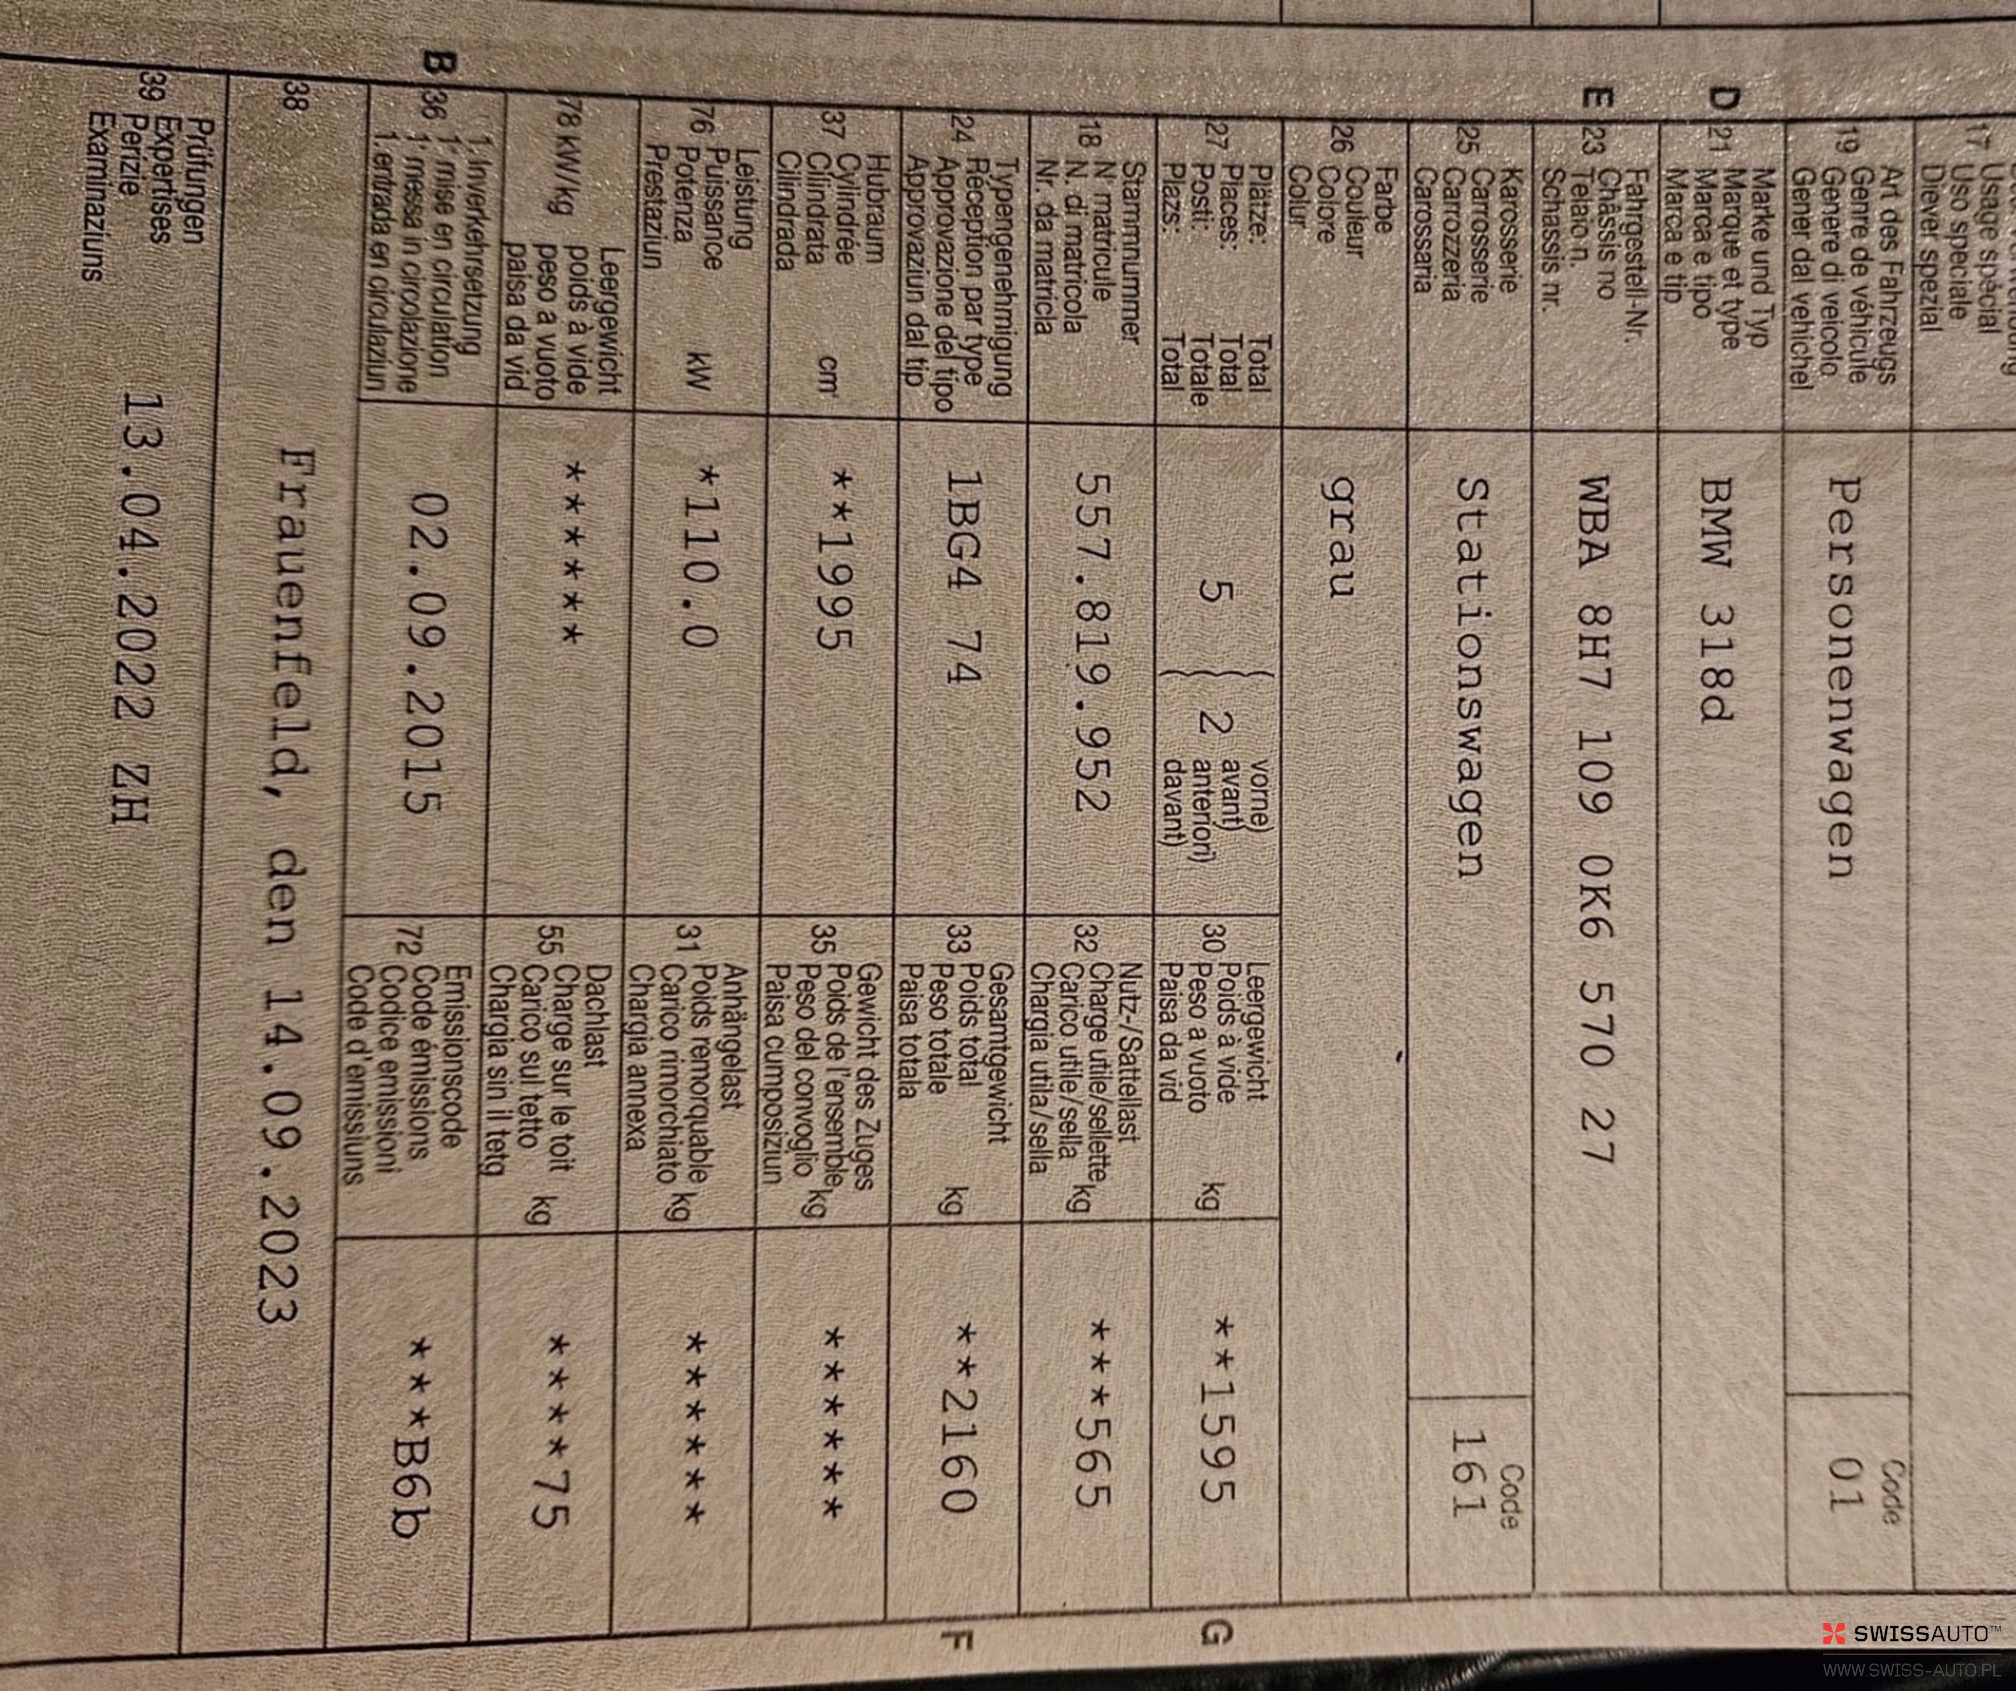 17 Usage spécial
Uso speciale
Diever spezial
Art des Fahrzeugs
19 Genre de véhicule
Genere di veicolo
Gener dal vehichel
Personenwagen
Code
01
Marke und Typ
D 21 Marque et type
Marca e tipo
Marca e tip
BMW 318d
Fahrgestell-Nr.
E 23 Châssis no
Telaio n.
Schassis nr.
WBA 8H7 109 0K6 570 27
Karosserie
25 Carrosserie
Carrozzeria
Carossaria
Stationswagen
Code
161
Farbe
26 Couleur
Colore
Colur
grau
Plätze: Total
27 Places: Total
Posti: Totale
Plazs: Total
5 ( 2 vorne)
avant)
anteriori)
davant)
Leergewicht
30 Poids à vide
Peso a vuoto kg
Paisa da vid
**1595
G
Stammnummer
18 N° matricule
N. di matricola
Nr. da matricla
557.819.952
Nutz-/Sattellast
32 Charge utile/sellette
Carico utile/sella kg
Chargia utila/sella
***565
Typengenehmigung
24 Réception par type
Approvazione del tipo
Approvaziun dal tip
1BG4 74
Gesamtgewicht
33 Poids total
Peso totale kg
Paisa totala
**2160
F
Hubraum
37 Cylindrée
Cilindrata cm³
Cilindrada
**1995
Gewicht des Zuges
35 Poids de l'ensemble
Peso del convoglio kg
Paisa cumposiziun
******
Leistung
76 Puissance
Potenza kW
Prestaziun
*110.0
Anhängelast
31 Poids remorquable
Carico rimorchiato kg
Chargia annexa
******
Leergewicht
78 kW/kg poids à vide
peso a vuoto
paisa da vid
******
Dachlast
55 Charge sur le toit
Carico sul tetto kg
Chargia sin il tetg
****75
1. Inverkehrsetzung
B 36 1re mise en circulation
1a messa in circolazione
1. entrada en circulaziun
02.09.2015
Emissionscode
72 Code émissions
Codice emissioni
Code d'emissiuns
***B6b
38 Frauenfeld, den 14.09.2023
Prüfungen
39 Expertises
Perizie
Examinaziuns
13.04.2022 ZH
SWISSAUTO™
WWW.SWISS-AUTO.PL